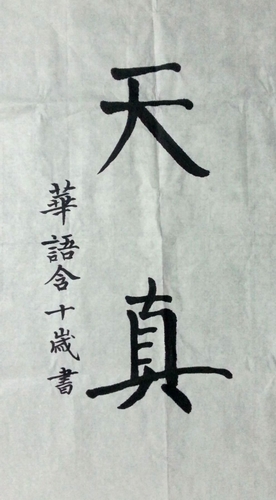 天真
華語含十歲書